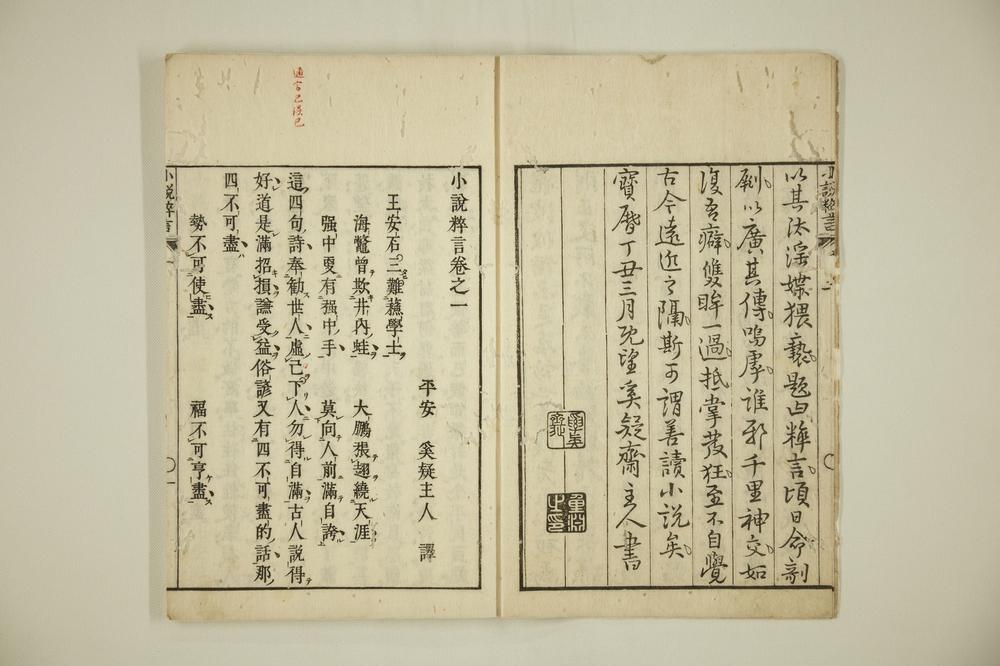 以其汰淫媟猥褻題曰粹言頃日命剞
劂以廣其傳嗚虖誰邪千里神交如
復吾癖雙眸一過抵掌發狂至不自覺
古今遠近之隔斯可謂善讀小說矣
寶曆丁丑三月既望奚疑齋主人書
小說粹言卷之一
平安 奚疑主人 譯
王安石三難蘇學士
海鼈曾欺井內蛙 大鵬張翅繞天涯
强中更有强中手 莫向人前滿自誇
這四句詩奉勸世人虛己下人勿得自滿古人說得
好道是滿招損謙受益俗諺又有四不可盡的話那
四不可盡
勢不可使盡 福不可享盡
小說粹言